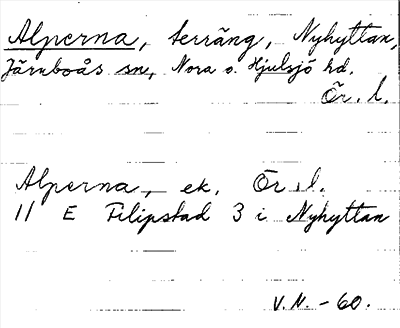 Alperna, terräng, Nyhyttan,
Järnboås sn, Nora o. Hjulsjö hd.
Ör. l.
Alperna, ek. Ör. l.
11 E Filipstad 3 i Nyhyttan
V.N. -60.